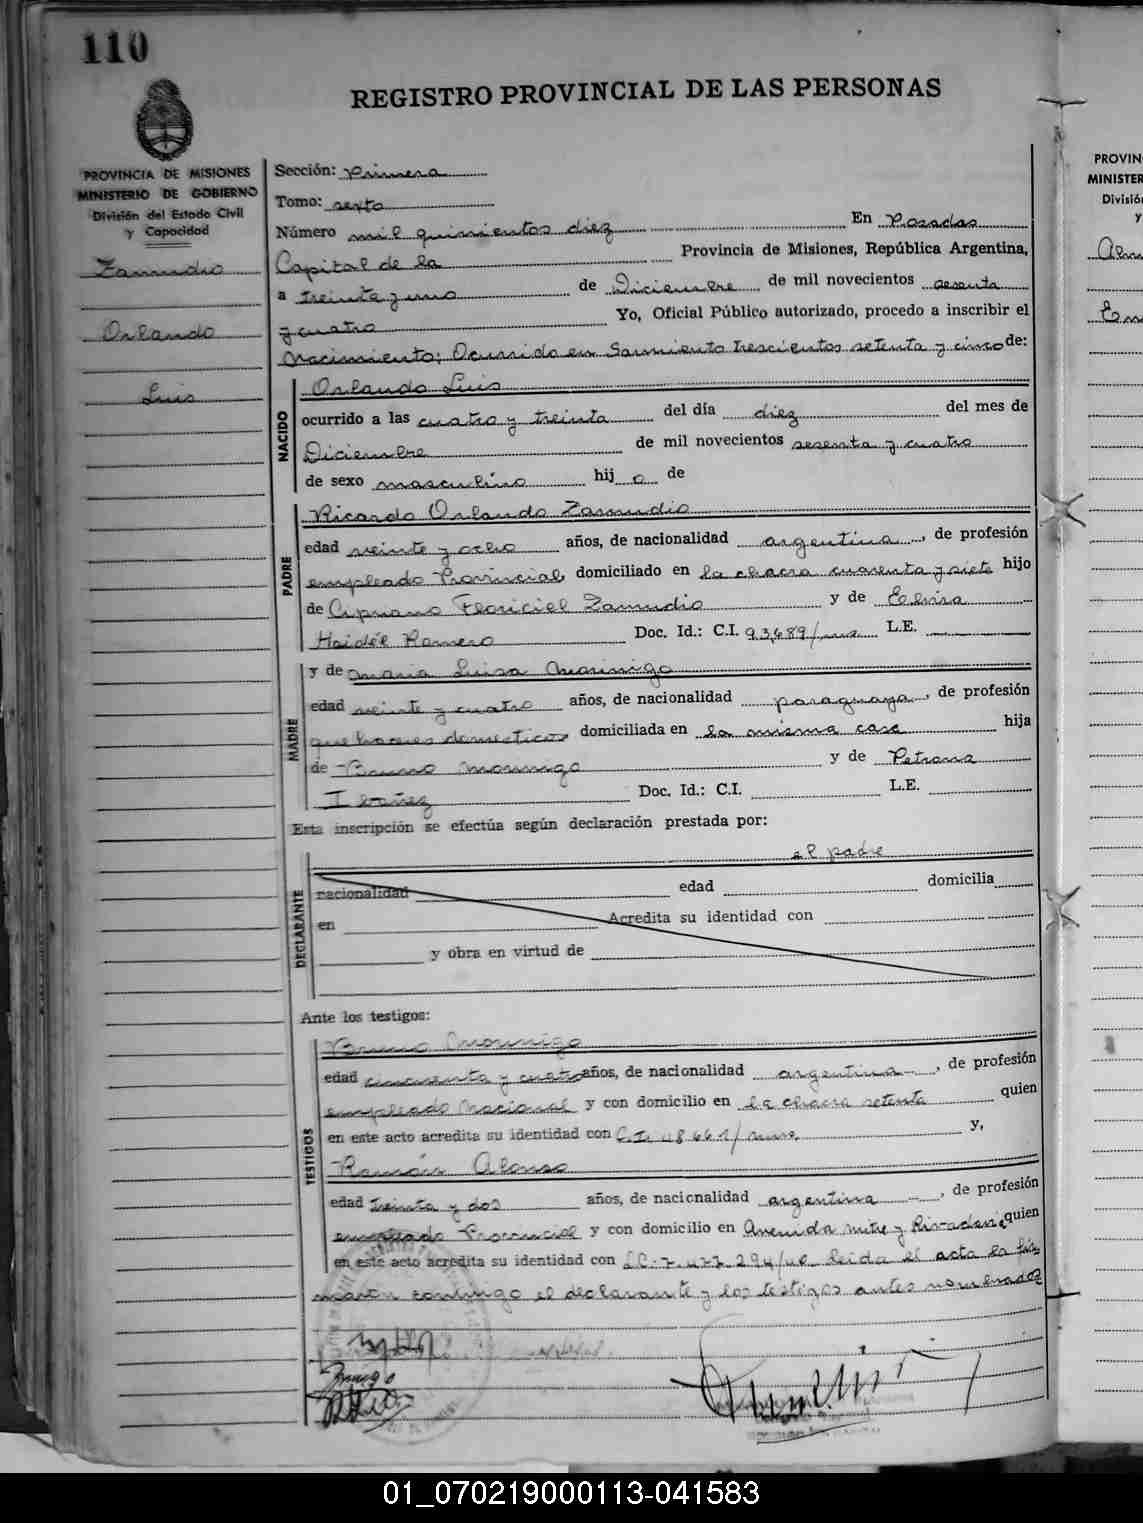 110
REGISTRO PROVINCIAL DE LAS PERSONAS
PROVINCIA DE MISIONES
MINISTERIO DE GOBIERNO
División del Estado Civil
y Capacidad
Zamudio
Orlando
Luis
Sección: Primera
Tomo: sexto
Número mil quinientos diez En Posadas
Capital de la Provincia de Misiones, República Argentina,
a treinta y uno de Diciembre de mil novecientos sesenta
y cuatro Yo, Oficial Público autorizado, procedo a inscribir el
Nacimiento; Ocurrido en Sarmiento trescientos setenta y cinco de:
NACIDO
Orlando Luis
ocurrido a las cuatro y treinta del día diez del mes de
Diciembre de mil novecientos sesenta y cuatro
de sexo masculino hij o de
PADRE
Ricardo Orlando Zamudio
edad veinte y ocho años, de nacionalidad argentina, de profesión
empleado Provincial, domiciliado en la chacra cuarenta y siete hijo
de Cipriano Zamudio y de Elvira
Haidée Romero Doc. Id.: C.I. 93,689/ L.E.
MADRE
y de Maria Luisa Morinigo
edad veinte y cuatro años, de nacionalidad paraguaya, de profesión
quehaceres domesticos domiciliada en la misma casa hija
de Bruno Morinigo y de Petrona
Ibañez Doc. Id.: C.I. L.E.
Esta inscripción se efectúa según declaración prestada por:
el padre
DECLARANTE
nacionalidad edad domicilia
en Acredita su identidad con
y obra en virtud de
Ante los testigos:
TESTIGOS
Bruno Morinigo
edad cincuenta y cuatro años, de nacionalidad argentina, de profesión
empleado Nacional y con domicilio en la chacra setenta quien
en este acto acredita su identidad con C.I. y,
Ramón Alonso
edad treinta y dos años, de nacionalidad argentina, de profesión
empleado Provincial y con domicilio en Avenida Mitre y quien
en este acto acredita su identidad con leida el acta la fir
maron conmigo el declarante y los testigos antes nombrados
PROVIN
MINISTER
Divisió
y
01_070219000113-041583